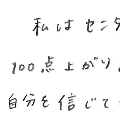 私はセンタ
100点上がり
自分を信じて